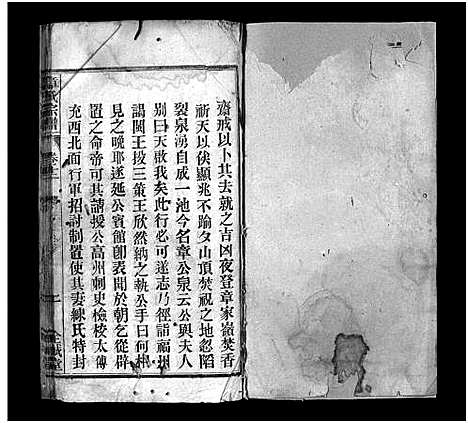 齋戒以卜其去就之吉凶夜登章家嶺焚香
祈天以俟顯兆不踰夕山頂焚視之地忽陷
裂泉湧自成一池今名章公泉云公與夫人
別曰天啟我矣此行必可遂志乃徑詣福州
謁閩王投三策王欣然納之執公手曰何相
見之晩耶遂延公賓館卽表聞於朝乞從辟
置之命帝可其請授公高州刺史檢校太傅
充西北面行軍招討制置使其妻練氏特封
氏宗譜
卷之